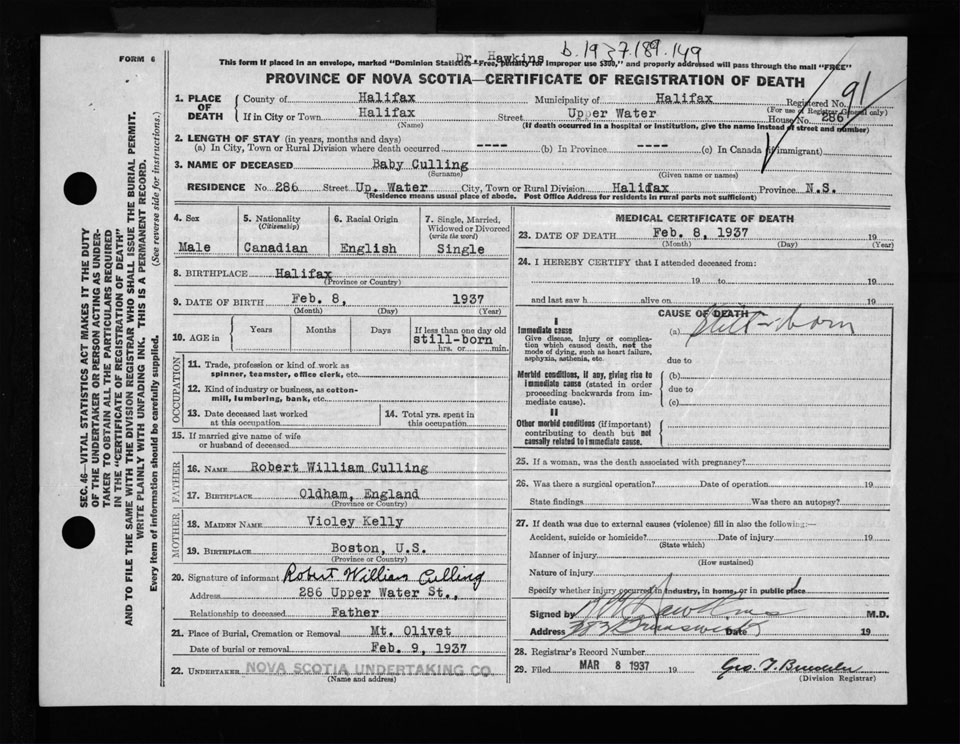 b.1937.189.149
Dr. Hawkins
FORM 6
This form if placed in an envelope, marked “Dominion Statistics—Free, penalty for improper use $300,” and properly addressed will pass through the mail “FREE”
PROVINCE OF NOVA SCOTIA—CERTIFICATE OF REGISTRATION OF DEATH
91
1. PLACE OF DEATH
County of Halifax Municipality of Halifax Registered No.
(For use of Registrar General only)
If in City or Town Halifax Street Upper Water House No. 286
(Name) (If death occurred in a hospital or institution, give the name instead of street and number)
2. LENGTH OF STAY (in years, months and days)
(a) In City, Town or Rural Division where death occurred ---- (b) In Province ---- (c) In Canada (if immigrant)
3. NAME OF DECEASED Baby Culling
(Surname) (Given name or names)
RESIDENCE No. 286 Street Up. Water City, Town or Rural Division Halifax Province N.S.
(Residence means usual place of abode. Post Office Address for residents in rural parts not sufficient)
4. Sex Male
5. Nationality (Citizenship) Canadian
6. Racial Origin English
7. Single, Married, Widowed or Divorced (write the word) Single
8. BIRTHPLACE Halifax
(Province or Country)
9. DATE OF BIRTH Feb. 8, 1937
(Month) (Day) (Year)
10. AGE in Years Months Days If less than one day old
still-born
hrs. or min.
OCCUPATION
11. Trade, profession or kind of work as
spinner, teamster, office clerk, etc.
12. Kind of industry or business, as cotton-
mill, lumbering, bank, etc.
13. Date deceased last worked
at this occupation
14. Total yrs. spent in
this occupation
15. If married give name of wife
or husband of deceased
FATHER
16. NAME Robert William Culling
17. BIRTHPLACE Oldham, England
(Province or Country)
MOTHER
18. MAIDEN NAME Violey Kelly
19. BIRTHPLACE Boston, U.S.
(Province or Country)
20. Signature of informant Robert William Culling
Address 286 Upper Water St.,
Relationship to deceased Father
21. Place of Burial, Cremation or Removal Mt. Olivet
Date of burial or removal Feb. 9, 1937
22. UNDERTAKER NOVA SCOTIA UNDERTAKING CO.
(Name and address)
MEDICAL CERTIFICATE OF DEATH
23. DATE OF DEATH Feb. 8, 1937 19
(Month) (Day) (Year)
24. I HEREBY CERTIFY that I attended deceased from:
19 to 19
and last saw h alive on 19
CAUSE OF DEATH
I
Immediate cause (a) Still-born
Give disease, injury or complica-
tion which caused death, not the
mode of dying, such as heart failure,
asphyxia, asthenia, etc.
due to
Morbid conditions, if any, giving rise to (b)
immediate cause (stated in order
proceeding backwards from im-
mediate cause).
due to
(c)
II
Other morbid conditions (if important)
contributing to death but not
causally related to immediate cause.
25. If a woman, was the death associated with pregnancy?
26. Was there a surgical operation? Date of operation 19
State findings Was there an autopsy?
27. If death was due to external causes (violence) fill in also the following:—
Accident, suicide or homicide? Date of injury 19
(State which)
Manner of injury
(How sustained)
Nature of injury
Specify whether injury occurred in industry, in home, or in public place
Signed by Hawkins M.D.
Address 383 Brunswick Date 19
28. Registrar's Record Number
29. Filed MAR 8 1937 19
(Division Registrar)
SEC. 46—VITAL STATISTICS ACT MAKES IT THE DUTY
OF THE UNDERTAKER OR PERSON ACTING AS UNDER-
TAKER TO OBTAIN ALL THE PARTICULARS REQUIRED
IN THE “CERTIFICATE OF REGISTRATION OF DEATH”
AND TO FILE THE SAME WITH THE DIVISION REGISTRAR WHO SHALL ISSUE THE BURIAL PERMIT.
WRITE PLAINLY WITH UNFADING INK. THIS IS A PERMANENT RECORD.
Every item of information should be carefully supplied. (See reverse side for instructions.)